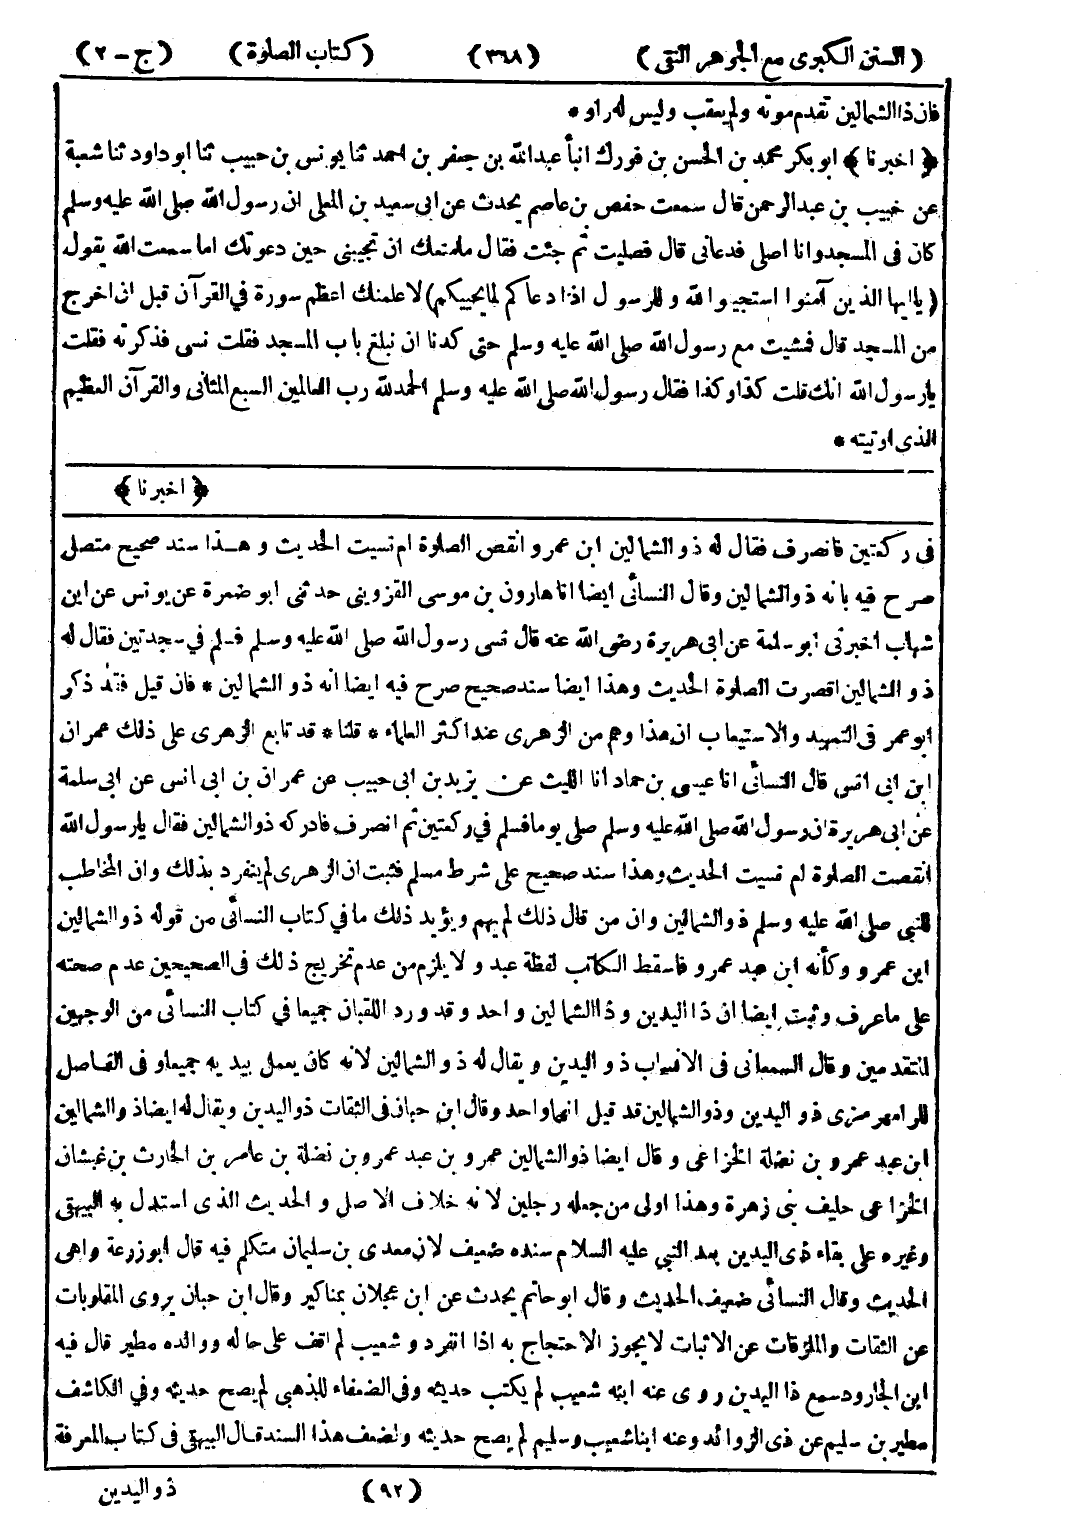 (السنن الكبرى مع الجوهر النقى) (٣٦٨) (كتاب الصلوة) (ج - ٢)
فان ذا الشمالين تقدم موته ولم يعقب وليس له راو *
﴿ اخبرنا ﴾ ابو بكر محمد بن الحسن بن فورك انبأ عبد الله بن جعفر بن احمد ثنا يونس بن حبيب ثنا ابو داود ثنا شعبة
عن خبيب بن عبد الرحمن قال سمعت حفص بن عاصم يحدث عن ابى سعيد بن المعلى ان رسول الله صلى الله عليه وسلم
كان فى المسجد وانا اصلى فدعانى قال فصليت ثم جئت فقال ما منعك ان تجيبنى حين دعوتك اما سمعت الله يقول
(يا ايها الذين آمنوا استجيبوا لله وللرسول اذا دعاكم لما يحييكم) لاعلمنك اعظم سورة في القرآن قبل ان اخرج
من المسجد قال فمشيت مع رسول الله صلى الله عليه وسلم حتى كدنا ان نبلغ باب المسجد فقلت نسى فذكرته فقلت
يا رسول الله انك قلت كذا وكذا فقال رسول الله صلى الله عليه وسلم الحمد لله رب العالمين السبع المثانى والقرآن العظيم
الذى اوتيته *
﴿ اخبرنا ﴾
فى ركعتين فانصرف فقال له ذو الشمالين ابن عمرو انقص الصلوة ام نسيت الحديث وهذا سند صحيح متصل
صرح فيه بانه ذو الشمالين وقال النسائى ايضا انا هارون بن موسى القزوينى حدثنى ابو ضمرة عن يونس عن ابن
شهاب اخبرنى ابو سلمة عن ابى هريرة رضى الله عنه قال نسى رسول الله صلى الله عليه وسلم فسلم في سجدتين فقال له
ذو الشمالين اقصرت الصلوة الحديث وهذا ايضا سند صحيح صرح فيه ايضا انه ذو الشمالين * فان قيل فقد ذكر
ابو عمر فى التمهيد والاستيعاب ان هذا وهم من الزهرى عند اكثر العلماء * قلنا * قد تابع الزهرى على ذلك عمران
ابن ابى انس قال النسائى انا عيسى بن حماد انا الليث عن يزيد بن ابى حبيب عن عمران بن ابى انس عن ابى سلمة
عن ابى هريرة ان رسول الله صلى الله عليه وسلم صلى يوما فسلم في ركعتين ثم انصرف فادركه ذو الشمالين فقال يا رسول الله
انقصت الصلوة ام نسيت الحديث وهذا سند صحيح على شرط مسلم فثبت ان الزهرى لم ينفرد بذلك وان المخاطب
للنبي صلى الله عليه وسلم ذو الشمالين وان من قال ذلك لم يهم ويؤيد ذلك ما في كتاب النسائى من قوله ذو الشمالين
ابن عمرو وكأنه ابن عبد عمرو فاسقط الكاتب لفظة عبد ولا يلزم من عدم تخريج ذلك فى الصحيحين عدم صحته
على ما عرف وثبت ايضا ان ذا اليدين وذا الشمالين واحد وقد ورد اللقبان جميعا في كتاب النسائى من الوجهين
المتقدمين وقال السمعانى فى الانساب ذو اليدين ويقال له ذو الشمالين لانه كان يعمل بيديه جميعا وفى الفاصل
للرامهرمزى ذو اليدين وذو الشمالين قد قيل انهما واحد وقال ابن حبان فى الثقات ذو اليدين ويقال له ايضا ذو الشمالين
ابن عبد عمرو بن نضلة الخزاعى وقال ايضا ذو الشمالين عمرو بن عبد عمرو بن نضلة بن عامر بن الحارث بن غبشان
الخزاعى حليف بنى زهرة وهذا اولى من جعله رجلين لانه خلاف الاصل والحديث الذى استدل به البيهقى
وغيره على بقاء ذى اليدين بعد النبي عليه السلام سنده ضعيف لان معدى بن سليمان متكلم فيه قال ابو زرعة واهى
الحديث وقال النسائى ضعيف الحديث وقال ابو حاتم يحدث عن ابن عجلان بمناكير وقال ابن حبان يروى المقلوبات
عن الثقات والملزقات عن الاثبات لا يجوز الاحتجاج به اذا انفرد وشعيب لم اقف على حاله ووالده مطير قال فيه
ابن الجارود سمع ذا اليدين روى عنه ابنه شعيب لم يكتب حديثه وفى الضعفاء للذهبى لم يصح حديثه وفي الكاشف
مطير بن سليم عن ذى الزوائد وعنه ابناه شعيب وسليم لم يصح حديثه ولضعف هذا السند قال البيهقى فى كتاب المعرفة
(٩٢) ذو اليدين